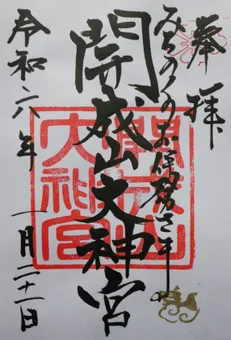 奉拝
みちのくのお伊勢さま
開成山大神宮
令和六年 一月二十一日
開成山大神宮